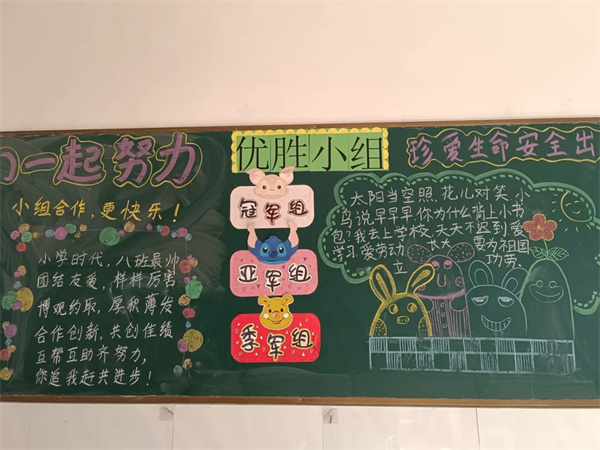 一起努力
小组合作,更快乐!
小学时代,八班最帅
团结友爱,样样厉害
博观约取,厚积薄发
合作创新,共创佳绩
互帮互助齐努力,
你追我赶共进步!
优胜小组
冠军组
亚军组
季军组
珍爱生命安全出
太阳当空照,花儿对笑,小
鸟说早早早,你为什么背上小书
包?我去上学校,天天不迟到爱
学习,爱劳动 长大 要为祖国
立 功劳